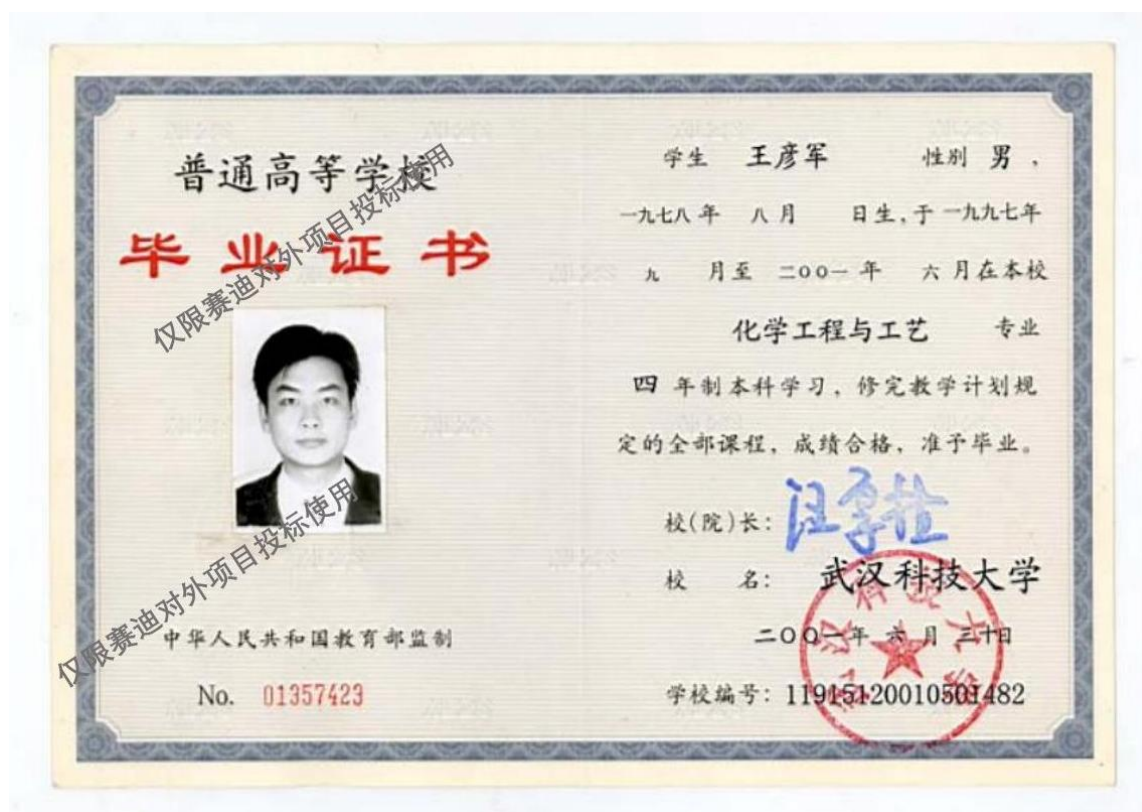 普通高等学校
毕业证书
仅限赛迪对外项目投标使用
仅限赛迪对外项目投标使用
中华人民共和国教育部监制
No. 01357423
学生 王彦军 性别 男,
一九七八年 八月 日生,于一九九七年
九 月至 二〇〇一年 六月在本校
化学工程与工艺 专业
四 年制本科学习,修完教学计划规
定的全部课程,成绩合格,准予毕业。
校(院)长:
校 名: 武汉科技大学
二〇〇一年 六 月 三十日
学校编号: 11915120010501482
武汉科技大学